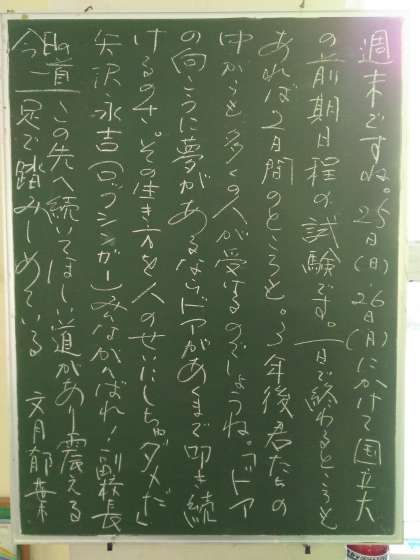 週末ですね。25日(日)・26日(月)にかけて国立大
の前期日程の試験です。一日で終わるところも
あれば2日間のところも。3年後君たちの
中からも多くの人が受けるのでしょうね。「ドア
の向こうに夢があるならドアがあくまで叩き続
けるのサ。その生き方を人のせいにしちゃダメだ」
矢沢永吉(ロックシンガー)みながんばれ!副校長
今日の一首 この先へ続いてほしい道があり震える
足で踏みしめている 文月郁葉